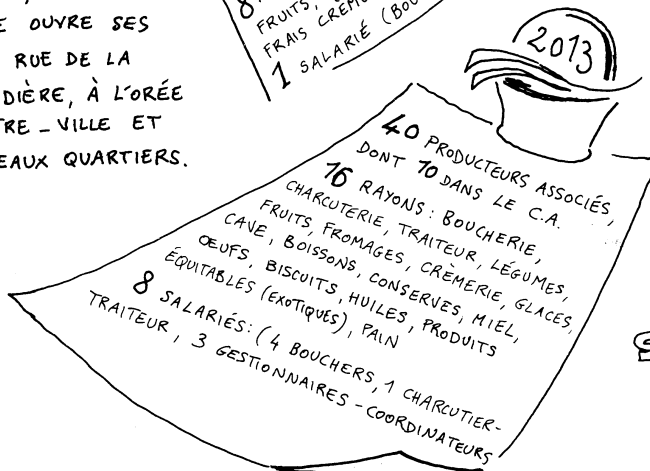 E OUVRE SES
RUE DE LA
DIÈRE, À L'ORÉE
TRE-VILLE ET
EAUX QUARTIERS.
8
FRUITS,
FRAIS CRÉM
1 SALARIÉ (BOU
2013
40 PRODUCTEURS ASSOCIÉS,
DONT 10 DANS LE C.A.
16 RAYONS : BOUCHERIE,
CHARCUTERIE, TRAITEUR, LÉGUMES,
FRUITS, FROMAGES, CRÈMERIE, GLACES,
CAVE, BOISSONS, CONSERVES, MIEL,
ŒUFS, BISCUITS, HUILES, PRODUITS
ÉQUITABLES (EXOTIQUES), PAIN
8 SALARIÉS: (4 BOUCHERS, 1 CHARCUTIER-
TRAITEUR, 3 GESTIONNAIRES-COORDINATEURS